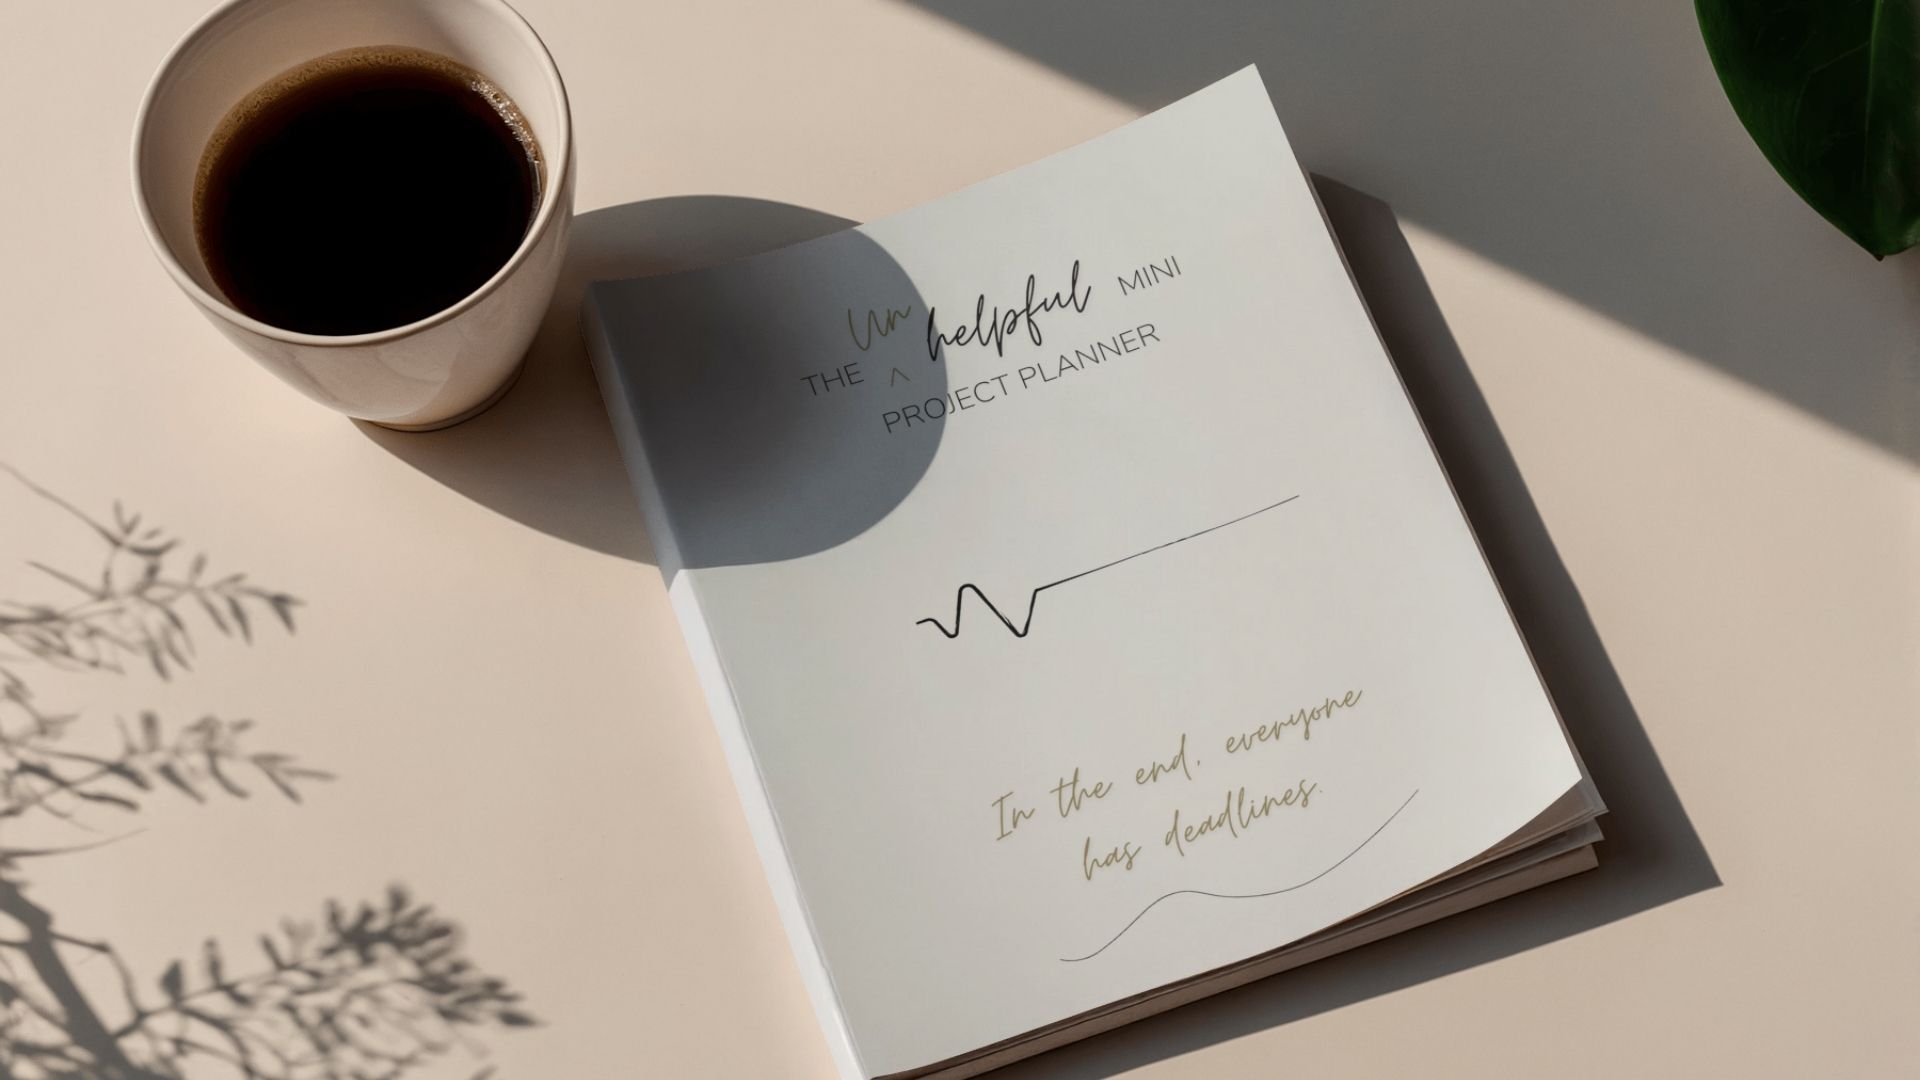 THE ^ Un helpful MINI
PROJECT PLANNER
In the end, everyone
has deadlines.